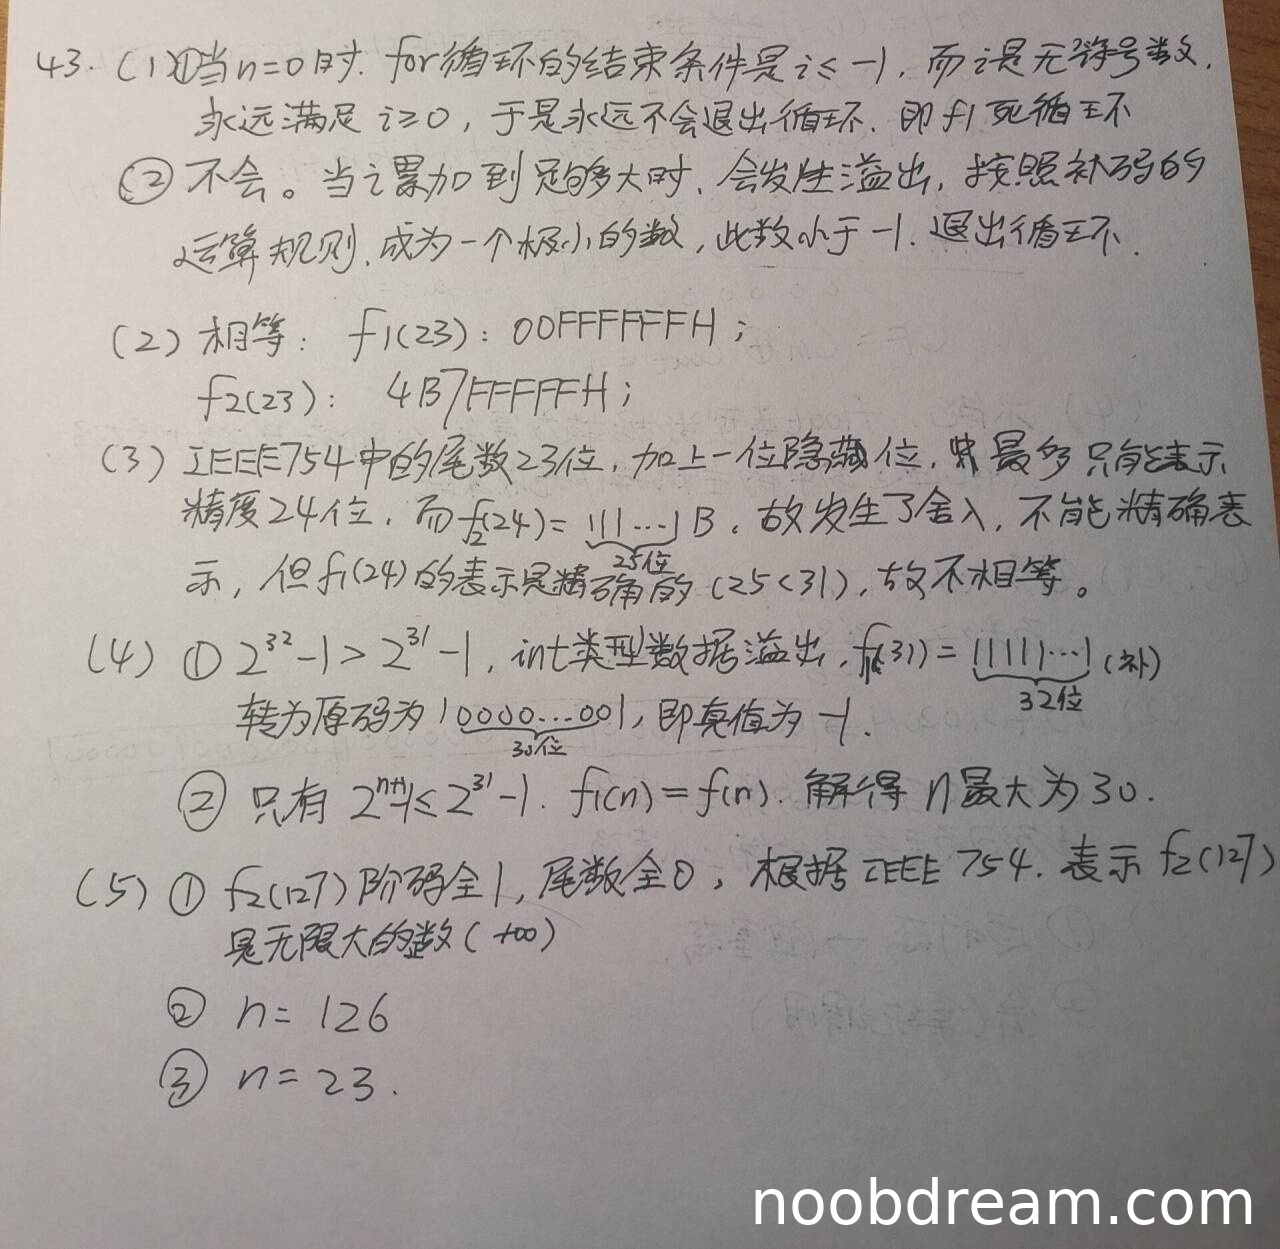 43. (1)①当n=0时. for循环的结束条件是i≤-1, 而i是无符号数,
永远满足i≥0, 于是永远不会退出循环. 即f1死循环
② 不会。当i累加到足够大时, 会发生溢出, 按照补码的
运算规则, 成为一个极小的数, 此数小于-1. 退出循环.
(2) 相等: f1(23): 00FFFFFFH;
f2(23): 4B7FFFFFH;
(3) IEEE754中的尾数23位, 加上一位隐藏位, 最多只能表示
精度24位, 而f2(24)= 111...1B, 故发生了舍入, 不能精确表
25位
示, 但f1(24)的表示是精确的(25<31), 故不相等。
(4) ① 2^32-1>2^31-1, int类型数据溢出, f1(31)= 11111...1(补)
32位
转为原码为10000...001, 即真值为-1.
30位
② 只有 2^n+1-1≤2^31-1. f1(n)=f(n). 解得n最大为30.
(5) ① f2(127)阶码全1, 尾数全0, 根据IEEE 754. 表示f2(127)
是无限大的数(+∞)
② n=126
③ n=23.
noobdream.com